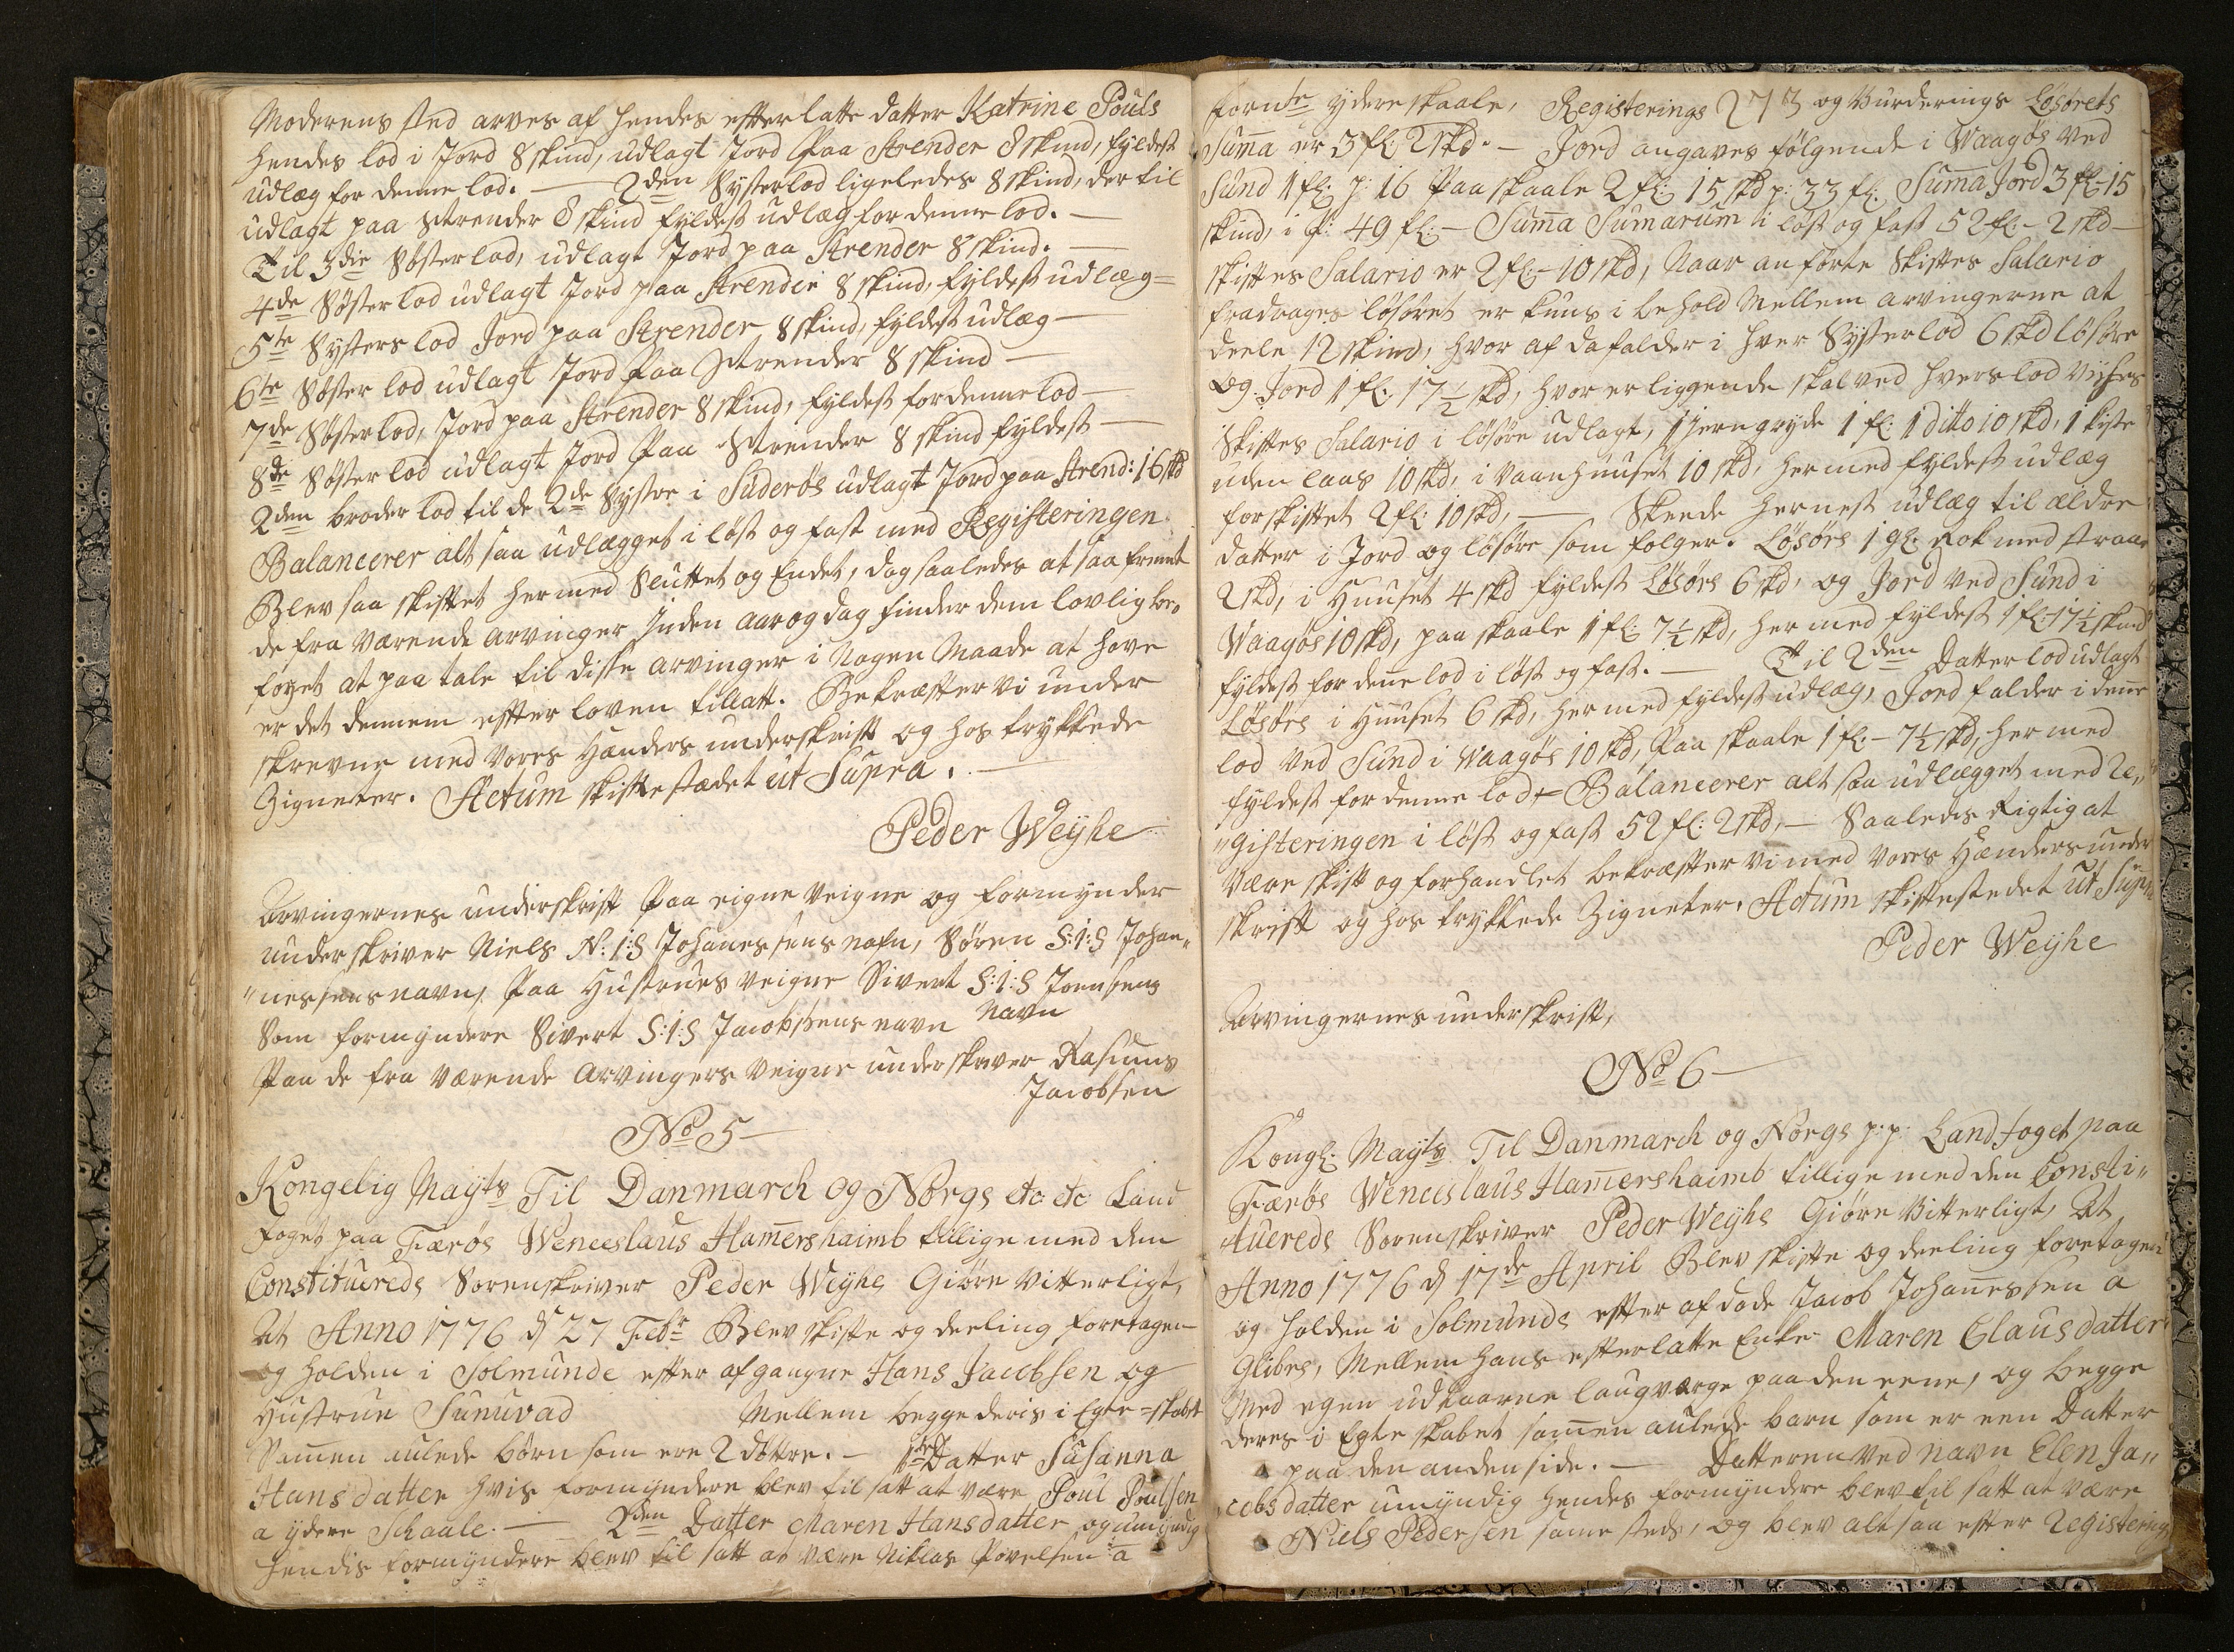 Moderens sted arves af hendes efterlatte datter Katrine Pouls
hendes lod i Jord 8 skind, udlagt Jord Paa Strender 8 skind, fyldest
udlæg for denne lod. — 2den Systerlod ligeledes 8 skind, der til
udlagt paa Strender 8 skind fyldest udlæg for denne lod. —
Til 3die Søsterlod, udlagt Jord paa Strender 8 skind. —
4de Søster lod udlagt Jord paa Strender 8 skind, fyldest udlæg =
5te Systers lod Jord paa Strender 8 skind, fyldest udlæg —
6te Søster lod udlagt Jord Paa Strender 8 skind —
7de Søsterlod, Jord paa Strender 8 skind, fyldest for denne lod —
8de Søsterlod udlagt Jord Paa Strender 8 skind fyldest —
2den broder lod til de 2de Systre i Suderøe udlagt Jord paa Strend: 16 skd
Balancerer alt saa udlægget i løst og fast med Registeringen
Blev saa skiftet hermed Sluttet og Endet, dog saaledes at saa fremt
de fra værende Arvinger Inden aar og dag finder dem lovlig be„
føyet at paa tale til disse arvinger i Nogen Maade at have
er det dennem efter loven tillatt. Bekræfter vi under
skrevne med vores Hænders underskrift og hos trykkede
Zigneter. Actum skiftestædet ut Supra. —
Peder Weyhe
Arvingernes underskrift Paa eigne veigne og formynder
underskriver Niels N:I:S Johanessens nafn, Søren S:I:S Johan„
„nessens navn, Paa Hustrues veigne Sivert S:I:S Joensens
Navn
Som formyndere Sivert S:I:S Jacobsens navn
Paa de fra værende Arvingers veigne underskriver Rasmus
Jacobsen
No 5 —
Kongelig Mayts Til Danmarch og Norgs etc etc Land
foget paa Færøe Wenceslaus Ham̄ershaimb tillige med den
Constituerede Sorenskriver Peder Weyhe Giøre vitterligt,
At Anno 1776 d 27 Febr Blev skifte og deeling foretagen
og holden i Solmunde efter afgangne Hans Jacobsen og
Hustrue Sunuvad Mellem begge deris i Egte=skabet
Sam̄en aulede børn som ere 2 døttre. — 1ste Datter Susanna
Hansdatter hvis formyndere blev til satt at være Poul Poulsen
a ydere Schaale. — 2den Datter Maren Hansdatter og umyndig
hendis formyndere blev til satt at være Niklas Povelsen a
fornte ydereskaale, Registerings 273 og Vurderings Løsørets
Sum̄a er 3 fl: 2 skd. — Jord angaves følgende i Waagøe ved
Sund 1 fl: p: 16 Paa skaale 2 fl: 15 skd p: 33 fl: Suma Jord 3 fl: 15
skind, i p: 49 fl: — Sum̄a Sumarum i løst og fast 52 fl: — 2 skd —
skiftes Salario er 2 fl: — 10 skd, Naar anførte Skiftes Salario
fradrages løsøret er kuns i behold Mellem arvingerne at
deele 12 skind, hvor af da falder i hver Systerlod 6 skd løsøre
Og Jord 1 fl: 17½ skd, hvor er liggende skal ved hvers lod vises
Skiftes Salario i løsøre udlagt, 1 Jerngryde 1 fl: 1 dito 10 skd, 1 kiste
uden laas 10 skd, i vaanhuuset 10 skd, hermed fyldest udlæg
for skiftet 2 fl: 10 skd, — Skeede hernest udlæg til ældre
datter i Jord og løsøre som følger. Løsøre 1 gl: Rok med
2 skd, i Huuset 4 skd fyldest Løsøre 6 skd, og Jord ved Sund i
Waagøe 10 skd, paa skaale 1 fl: 7½ skd, hermed fyldest 1 fl: 17½ skind
fyldest for deñe lod i løst og fast. — Til 2den Datter lod udlagt
Løsøre i Huuset 6 skd, hermed fyldest udlæg, Jord falder i deñe
lod ved Sund i Waagøe 10 skd, Paa skaale 1 fl: — 7½ skd, hermed
fyldest for denne lod, = Balancerer alt saa udlægget med Re„
„gisteringen i løst og fast 52 fl: 2 skd, — Saaledes Rigtig at
være skift og forhandlet bekræfter vi med vores Hænders under
skrift og hos trykkede Zigneter. Actum skiftestedet ut Supra
Peder Weyhe
Arvingernes underskrift,
No 6 —
Kongl: Mayts Til Danmarch og Norgs p.p. Landfoget paa
Færøe Wenceslaus Ham̄ershaimb tillige med den Consti„
tuerede Sorenskriver Peder Weyhe Giøre Vitterligt, At
Anno 1776 d 17de April Blev skifte og deeling foretagen
og holden i Solmunde efter afdøde Jacob Johan̄essen a
Glibre, Mellem hans efterlatte Enke Maren Clausdatter
Med egen udkaarne laugværge paa den eene, og begge
deres i Egteskabet sam̄en aulede barn som er een Datter
paa den anden side. — Datteren ved navn Elen Ja„
cobsdatter umyndig hendes formyndere blev til satt at være
Niels Pedersen same steds, og blev alt saa efter Registering